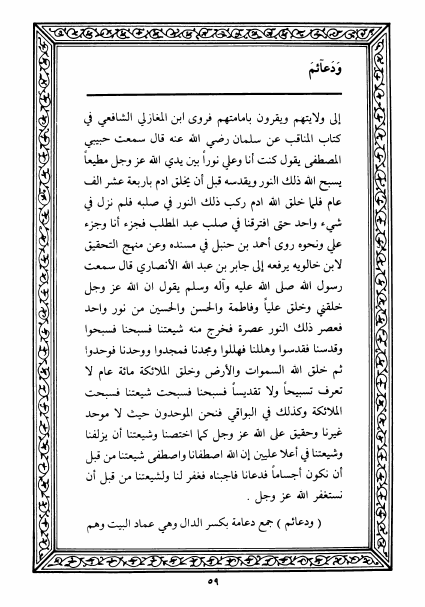 وَدَعَائِمَ
إلى ولايتهم ويقرون بامامتهم فروى ابن المغازلي الشافعي في
كتاب المناقب عن سلمان رضي الله عنه قال سمعت حبيبي
المصطفى يقول كنت أنا وعلي نوراً بين يدي الله عز وجل مطيعاً
يسبح الله ذلك النور ويقدسه قبل أن يخلق ادم باربعة عشر الف
عام فلما خلق الله ادم ركب ذلك النور في صلبه فلم نزل في
شيء واحد حتى افترقنا في صلب عبد المطلب فجزء أنا وجزء
علي ونحوه روى أحمد بن حنبل في مسنده وعن منهج التحقيق
لابن خالويه يرفعه إلى جابر بن عبد الله الأنصاري قال سمعت
رسول الله صلى الله عليه وآله وسلم يقول ان الله عز وجل
خلقني وخلق علياً وفاطمة والحسن والحسين من نور واحد
فعصر ذلك النور عصرة فخرج منه شيعتنا فسبحنا فسبحوا
وقدسنا فقدسوا وهللنا فهللوا ومجدنا فمجدوا ووحدنا فوحدوا
ثم خلق الله السموات والأرض وخلق الملائكة مائة عام لا
تعرف تسبيحاً ولا تقديساً فسبحنا فسبحت شيعتنا فسبحت
الملائكة وكذلك في البواقي فنحن الموحدون حيث لا موحد
غيرنا وحقيق على الله عز وجل كما اختصنا وشيعتنا أن يزلفنا
وشيعتنا في أعلا عليين إن الله اصطفانا واصطفى شيعتنا من قبل
أن نكون أجساماً فدعانا فاجبناه فغفر لنا ولشيعتنا من قبل أن
نستغفر الله عز وجل .
( ودعائم ) جمع دعامة بكسر الدال وهي عماد البيت وهم
٥٩